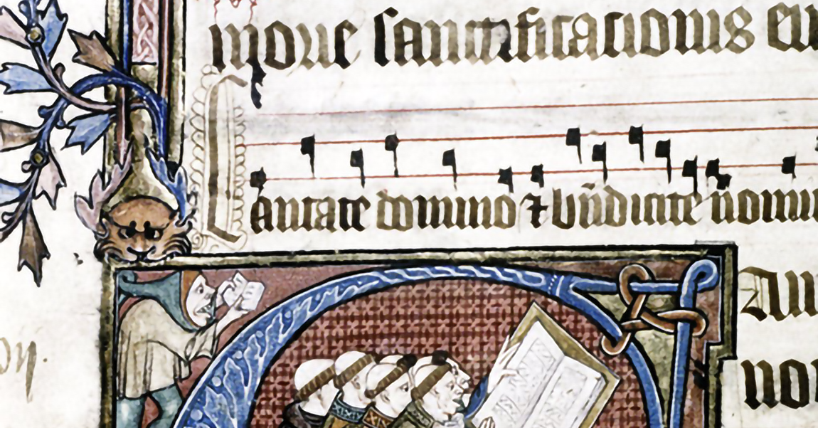 morie sanctificacionis
Cantate domino ⁊ bn̄dicite nomi
Can
no